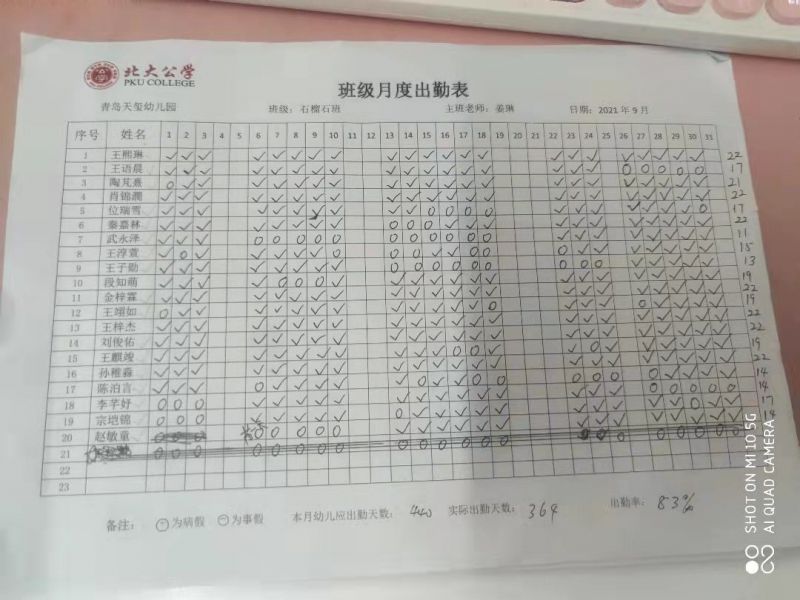 北大公学
PKU COLLEGE
班级月度出勤表
青岛天玺幼儿园 班级：石榴石班 主班老师：姜琳 日期：2021 年 9 月
序号 姓名 1 2 3 4 5 6 7 8 9 10 11 12 13 14 15 16 17 18 19 20 21 22 23 24 25 26 27 28 29 30 31
1 王熙琳 22
2 王语晨 17
3 陶芃熹 21
4 肖锦澜 22
5 位瑞雪 17
6 秦嘉林 22
7 武永泽 11
8 王淳萱 15
9 王子勋 13
10 段知萌 19
11 金梓霖 22
12 王翊如 19
13 王梓杰 22
14 刘俊佑 22
15 王麒竣 19
16 孙稚淼 22
17 陈泊言 14
18 李芊妤 14
19 宗垲锦 17
20 赵敏童 14
21
22
23
备注： 为病假 为事假 本月幼儿应出勤天数： 440 实际出勤天数： 364 出勤率： 83%
SHOT ON MI 10 5G
AI QUAD CAMERA